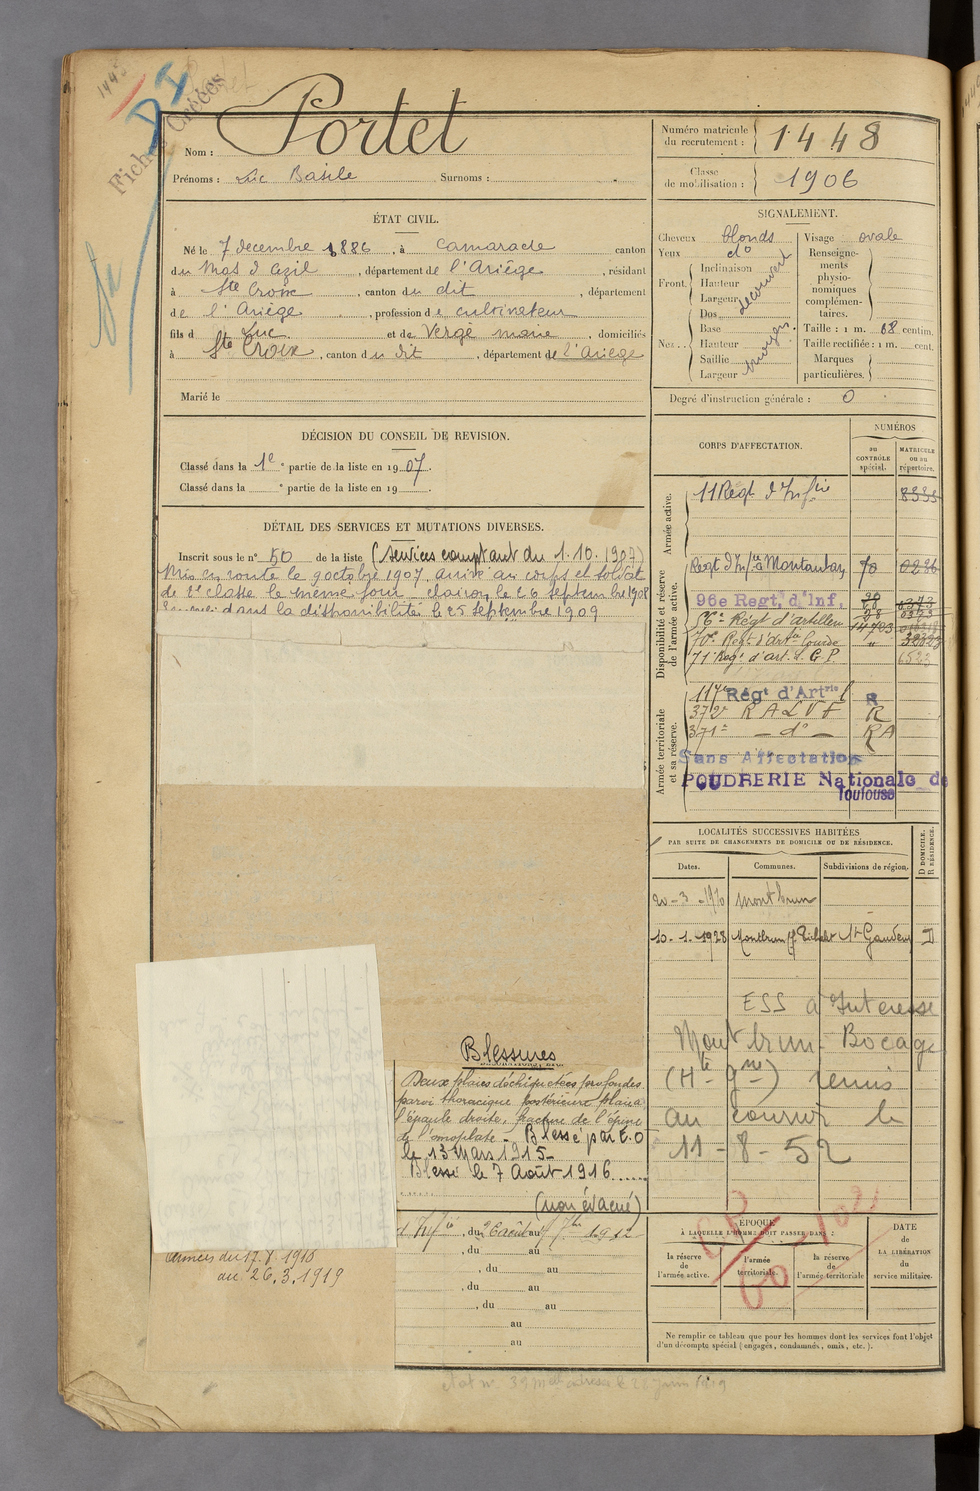 1445
D I
Fiches Créées
Nom : Portet
Prénoms : Luc Basile Surnoms :
Numéro matricule du recrutement : 1448
Classe de mobilisation : 1906
ÉTAT CIVIL.
Né le 7 decembre 1886, à Camarade canton
du Mas d'azil, département de l'Ariège, résidant
à Ste Croix, canton du dit, département
de l'Ariège, profession de cultivateur
fils de Luc et de Vergé marie, domiciliés
à Ste Croix, canton du dit, département de l'Ariège
Marié le
SIGNALEMENT.
Cheveux blonds
Yeux do
Front. Inclinaison
Hauteur
Largeur
découvert
Nez.. Dos
Base
Hauteur
Saillie
Largeur
moyen
Visage ovale
Renseigne-
ments
physio-
nomiques
complémen-
taires.
Taille : 1 m. 68 centim.
Taille rectifiée : 1 m. cent.
Marques
particulières.
Degré d'instruction générale : 0
DÉCISION DU CONSEIL DE REVISION.
Classé dans la 1e partie de la liste en 1907.
Classé dans la e partie de la liste en 19
DÉTAIL DES SERVICES ET MUTATIONS DIVERSES.
Inscrit sous le n° 50 de la liste (services comptant du 1.10.1907)
Mis en route le 9 octobre 1907, arrivé au corps et soldat
de 2e classe le même jour clairon le 26 septembre 1908
dans la disponibilité le 25 septembre 1909
Blessures
Deux plaies déchiquetées profondes
paroi thoracique postérieure plaie à
l'épaule droite, fracture de l'épine
de l'omoplate - Blessé par E.O
le 13 Mars 1915-
Blessé le 7 Août 1916......
(non évacué)
du au 1912
, du au
, du au
, du au
au
au
armées du 17.8.1918
au 26.3.1919
CORPS D'AFFECTATION.
NUMÉROS
au CONTRÔLE spécial.
MATRICULE ou au répertoire.
Armée active.
11 Régt d'Infie 8335
Disponibilité et réserve de l'armée active.
Régt d'Infie à Montauban 70
96e Regt. d'Inf.
56e Régt d'artillerie
70e Régt d'Arte lourde
71 Régt d'art. à G.P.
Armée territoriale et sa réserve.
117e Régt d'Artrie l R
372e R A L V F R
371e - do - RA
Sans Affectation
POUDRERIE Nationale de
Toulouse
LOCALITÉS SUCCESSIVES HABITÉES
PAR SUITE DE CHANGEMENTS DE DOMICILE OU DE RÉSIDENCE.
Dates. Communes. Subdivisions de région. D DOMICILE. R RÉSIDENCE.
20-3-1910 Montbrun
10.1.1928 Montbrun St Gaudens D
ESS a Interessé
Montbrun-Bocage
(Hte-Gne) remis
au courrier le
11-8-52
ÉPOQUE
À LAQUELLE L'HOMME DOIT PASSER DANS :
la réserve de l'armée active.
l'armée territoriale.
la réserve de l'armée territoriale
DATE
de
LA LIBÉRATION
du
service militaire.
Ne remplir ce tableau que pour les hommes dont les services font l'objet
d'un décompte spécial (engagés, condamnés, omis, etc.).